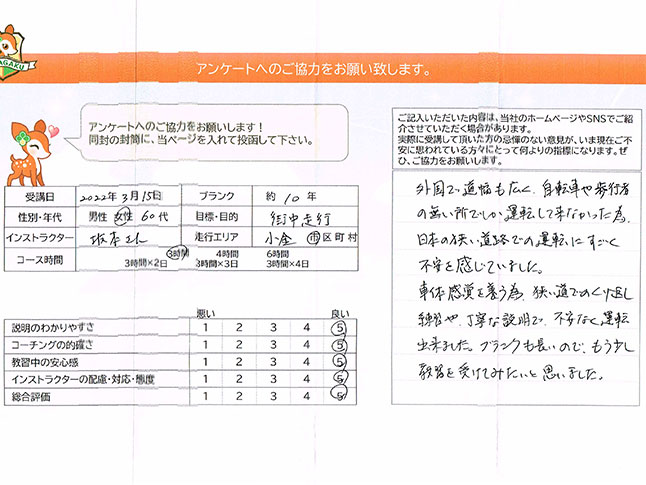 AGAKU
アンケートへのご協力をお願い致します。
アンケートへのご協力をお願いします!
同封の封筒に、当ページを入れて投函して下さい。
ご記入いただいた内容は、当社のホームページやSNSでご紹
介させていただく場合があります。
実際に受講して頂いた方の忌憚のない意見が、いま現在ご不
安に思われている方々にとって何よりの指標になります。ぜ
ひ、ご協力をお願いします。
受講日 2022年 3月 15日 ブランク 約 10 年
性別・年代 男性 女性 60代 目標・目的 街中走行
インストラクター 坂本さん 走行エリア 小金 市区町村
コース時間 3時間 4時間 6時間
3時間×2日 3時間×3日 3時間×4日
悪い 良い
説明のわかりやすさ 1 2 3 4 5
コーチングの的確さ 1 2 3 4 5
教習中の安心感 1 2 3 4 5
インストラクターの配慮・対応・態度 1 2 3 4 5
総合評価 1 2 3 4 5
外国で道幅も広く、自転車や歩行者
の無い所でしか運転して来なかった為、
日本の狭い道路での運転にすごく
不安を感じていました。
車体感覚を養う為、狭い道でのくり返し
練習や、丁寧な説明で、不安なく運転
出来ました。ブランクも長いので、もう少し
教習を受けてみたいと思いました。